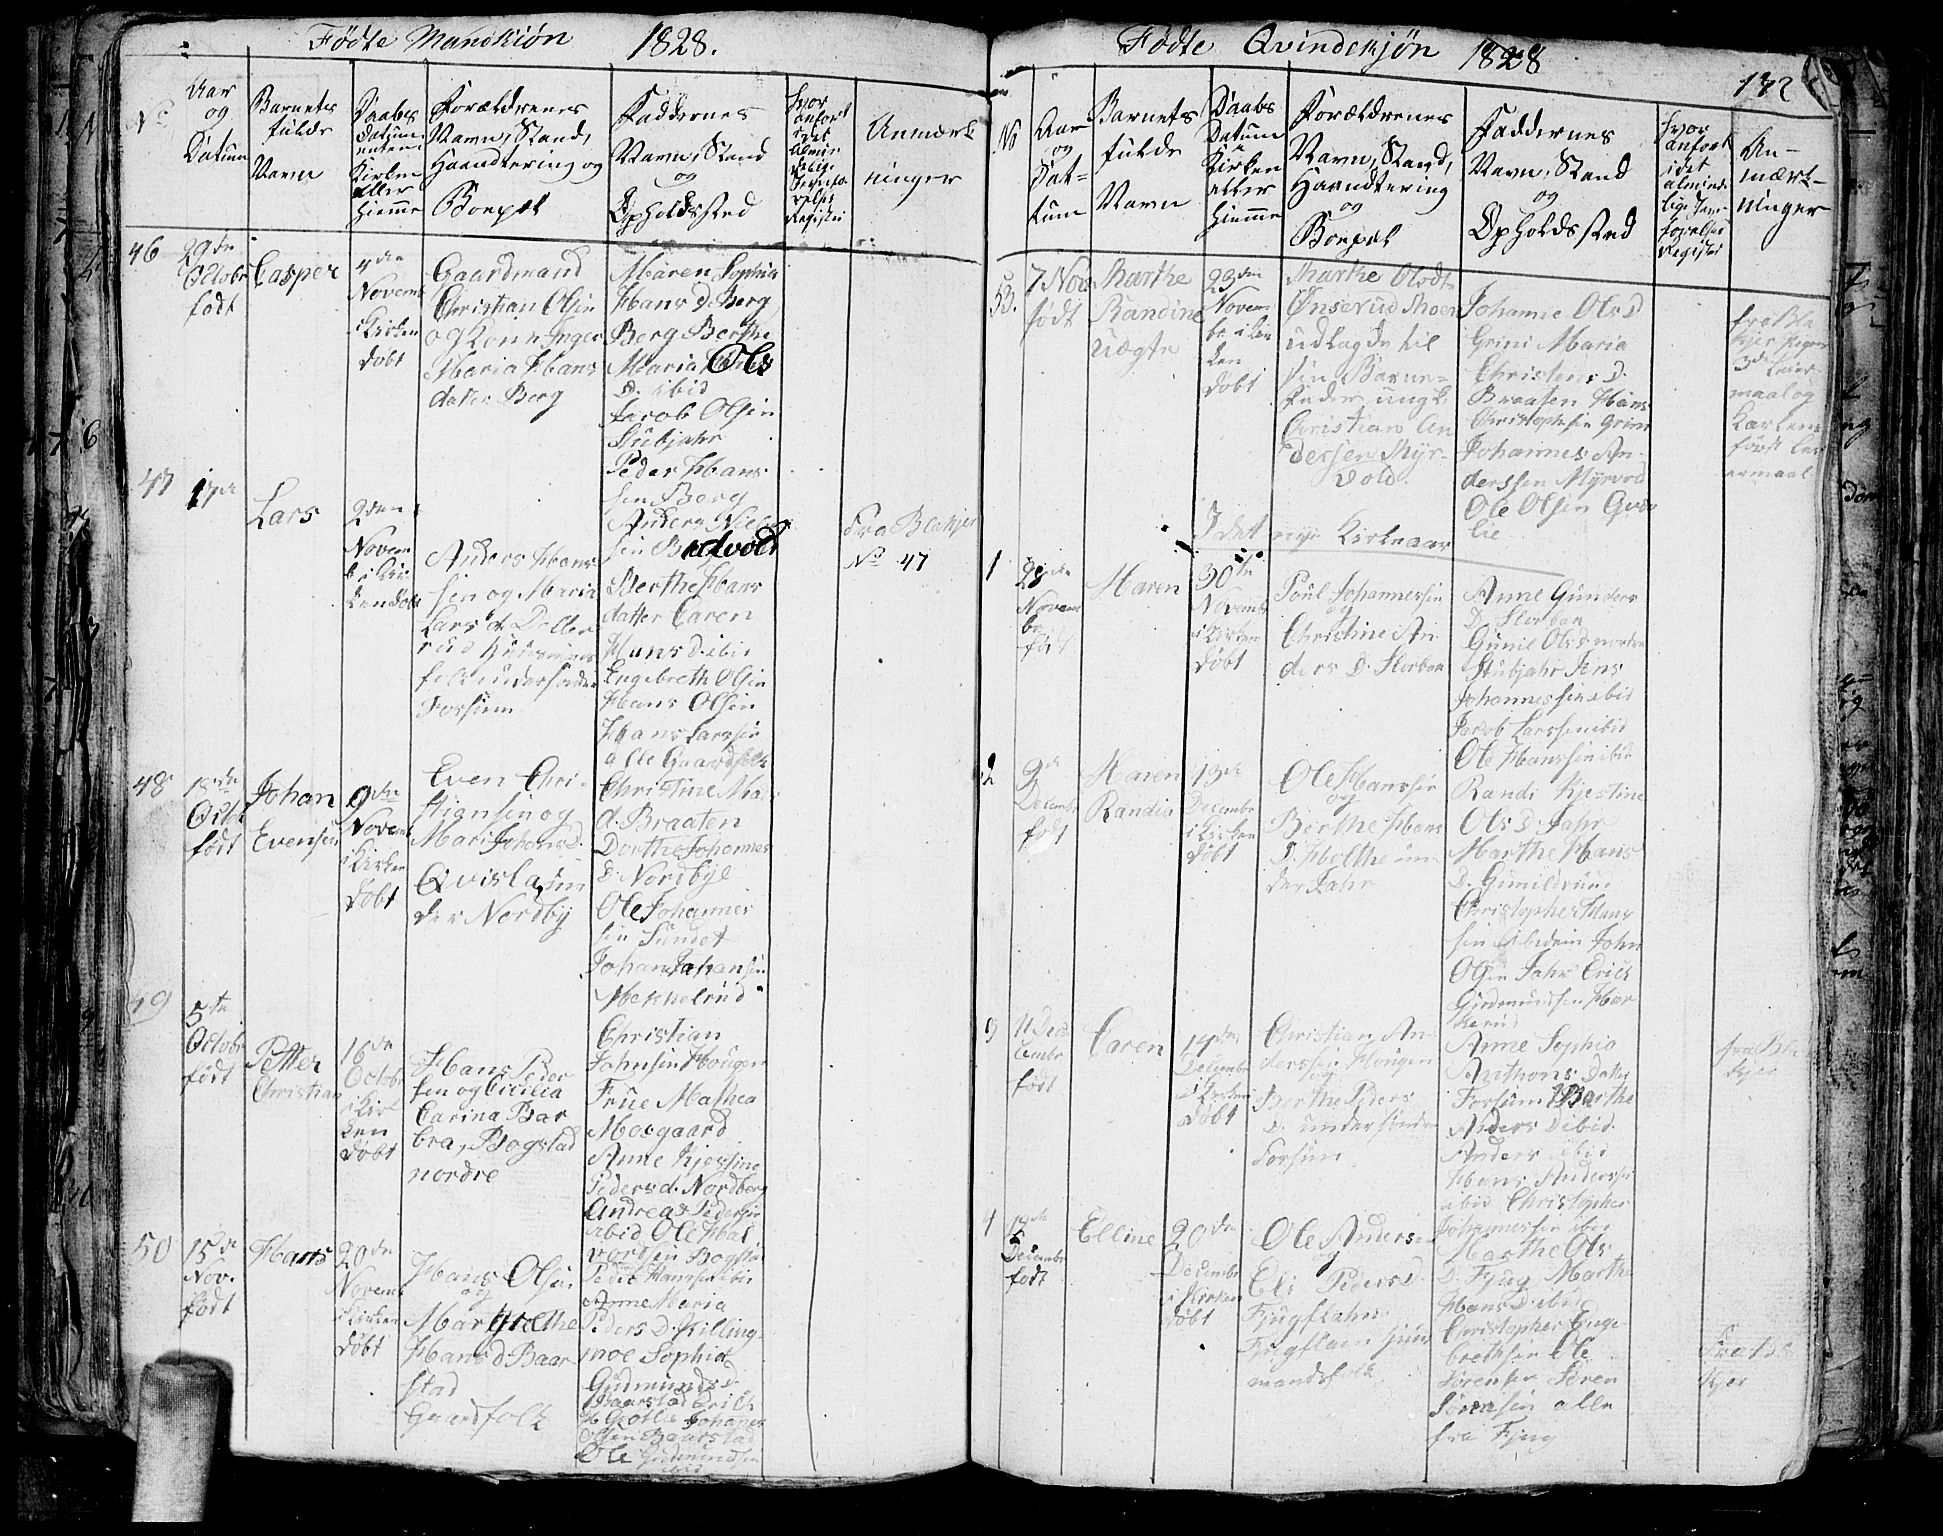 Fødte Mandkiøn 1828.
No
Aar
og
Datum
Barnets
fulde
Navn
Daabs
Datum
enten i
Kirken
eller
Hiemme
Forældrenes
Navn, Stand,
Haandtering og
Boepæl
Faddernes
Navn, Stand
og
Opholdssted
hvor
anført
i det
Almin
delige
Jevnfø
relses
Register
Anmærk
ninger
46
29de
Octobr
født
Casper
4de
Novemb
i Kirken
døbt
Gaardmand
Christian Olsen
og Kone Inger
Maria Hans
datter Berg
Maren Sophia
Hans D. Berg
Berg Berthe
Maria Ols
D. ibid
Jacob Olsen
Stubjahr
Peder Hans
sen Berg
47
17de
Lars
2den
Novem
b i Kir
ken døbt
Anders Hans
sen og Maria
Lars d. Doller
rud Huusmands
folk under søndre
Fossum
Anders Niel
sen
Berthe Hans
datter Caren
Hans D. ibid
Engebreth Olsen
Hans Olsen
Hans Larssen
alle Gaardfolk
fra Blakjer
No 47
48
18de
Octob
født
Johan
Evensen
9de
Novemb
i Kirken
døbt
Even Chri-
stiansen og
Mari Johans D.
Qvisla un
der Nordby
Christine Ma
d. Braaten
Dorthe Johannes
D. Nordbye
Ole Johannes
sen Sundet
Johan Johansen
Mekkelrud
49
5te
Octobr
født
Petter
Christian
16de
Octobr
i Kir
ken
døbt
Hans Peder
sen og Cicilia
Carina Bar
bra, Bogstad
nordre
Christian
Jahnsen Hougen
Frue Mathea
Mosgaard
Anne Kjestine
Peders d. Nordberg
Andreas Pedersen
ibid Ole Hal
vorsen Bogstad
Peder Hanssen ibid
50
15de
Nov.
født
Hans
20de
Novemb
i Kirken
døbt
Hans Olsen
og
Margrethe
Hans d. Baar
stad
Gaardfolk
Anne Maria
Peders D. Killing
moe Sophia
Gudmunds
Baarstad Erich
Johannes
Olsen Baarstad
Ole Gudmundsen
ibid
Fødte Qvindekjøn 1828
132
No
Aar
og
Dat-
tum
Barnets
fulde
Navn
Daabs
Datum
i
Kirken
eller
Hiemme
Forældrenes
Navn, Stand,
Haandtering
og
Boepæl
Faddernes
Navn, Stand
og
Opholdssted
hvor
anført
i det
alminde
lige Jevn
førelses
Register
An-
mærk-
ninger
53.
7 Nov
født
Marthe
Randine
uægte
23de
Novem
br i Kir
ken
døbt
Marthe Olsdt
Ønserud Moer
udlagde til
sin Barne-
fader ungk
Christian An
dersen Myr-
vold.
Johanne Ols D
Grini Maria
Christens D.
Braaten Hans
Christophsen Grini
Johannes An-
derssen Myrvod
Ole Olsen
lie
fra Bla
kjer Pigens
3de Leier
maal og
Karlens
først Lei
ermaal
I det nye Kirkeaar
1
28de
Novem
br
født
Maren
30te
Novemb
i Kirken
døbt
Poul Johannessen
og
Christine An
ders D. Slorben
Anne Gunders
D. Slorben
Gunil Ols D nordre
Stubjahr Jens
Johannessen ibid
Jacob Larssen ibid
Ole Hanssen ibid
2
9de
Decembr
født
Maren
Randia
13de
Decembr
i Kirken
døbt
Ole Hanssen
og
Berthe Hans
D. Holthe un
der Jahr
Randi Kjestine
Ols D. Jahr
Marthe Hans
D. Gunildrund
Christopher Hans
sen ibidem John
Olsen Jahr Erich
Gudmundsen Hær
kerud
3
11 De
cembr
født
Caren
14de
Decembr
i Kirken
døbt
Christian An
derssen Hougen
Berthe Peders
D. under søndre
Forsum
Anne Sophia
Anthons Datter
Forsum Barthe
Anders D ibid
Anders ibid
Hans Anderssen
ibid Christopher
Johannessen ibid
fra Bla
kjer
4
15de
Decembr
født
Elline
20de
Decembr
i Kirken
døbt
Ole Andersen
og
Eli Peders D.
Fjugflahn
Fjugflaen huus
mandsfolk
Marthe Ols
D. Fjug Marthe
Hans D. ibid
Christopher Enge-
brethsen Ole
Sørensen Søren
Sørensen alle
fra Fjug
Fra Bla
kjer